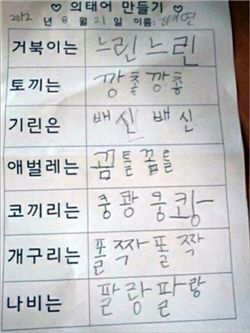 ♡ 의태어 만들기 ♡
2012 년 8 월 21 일 이름:
거북이는 느린느린
토끼는 깡총깡총
기린은 배신 배신
애벌레는 꿈틀꿈틀
코끼리는 쿵쾅
개구리는 폴짝 폴짝
나비는 팔랑팔랑